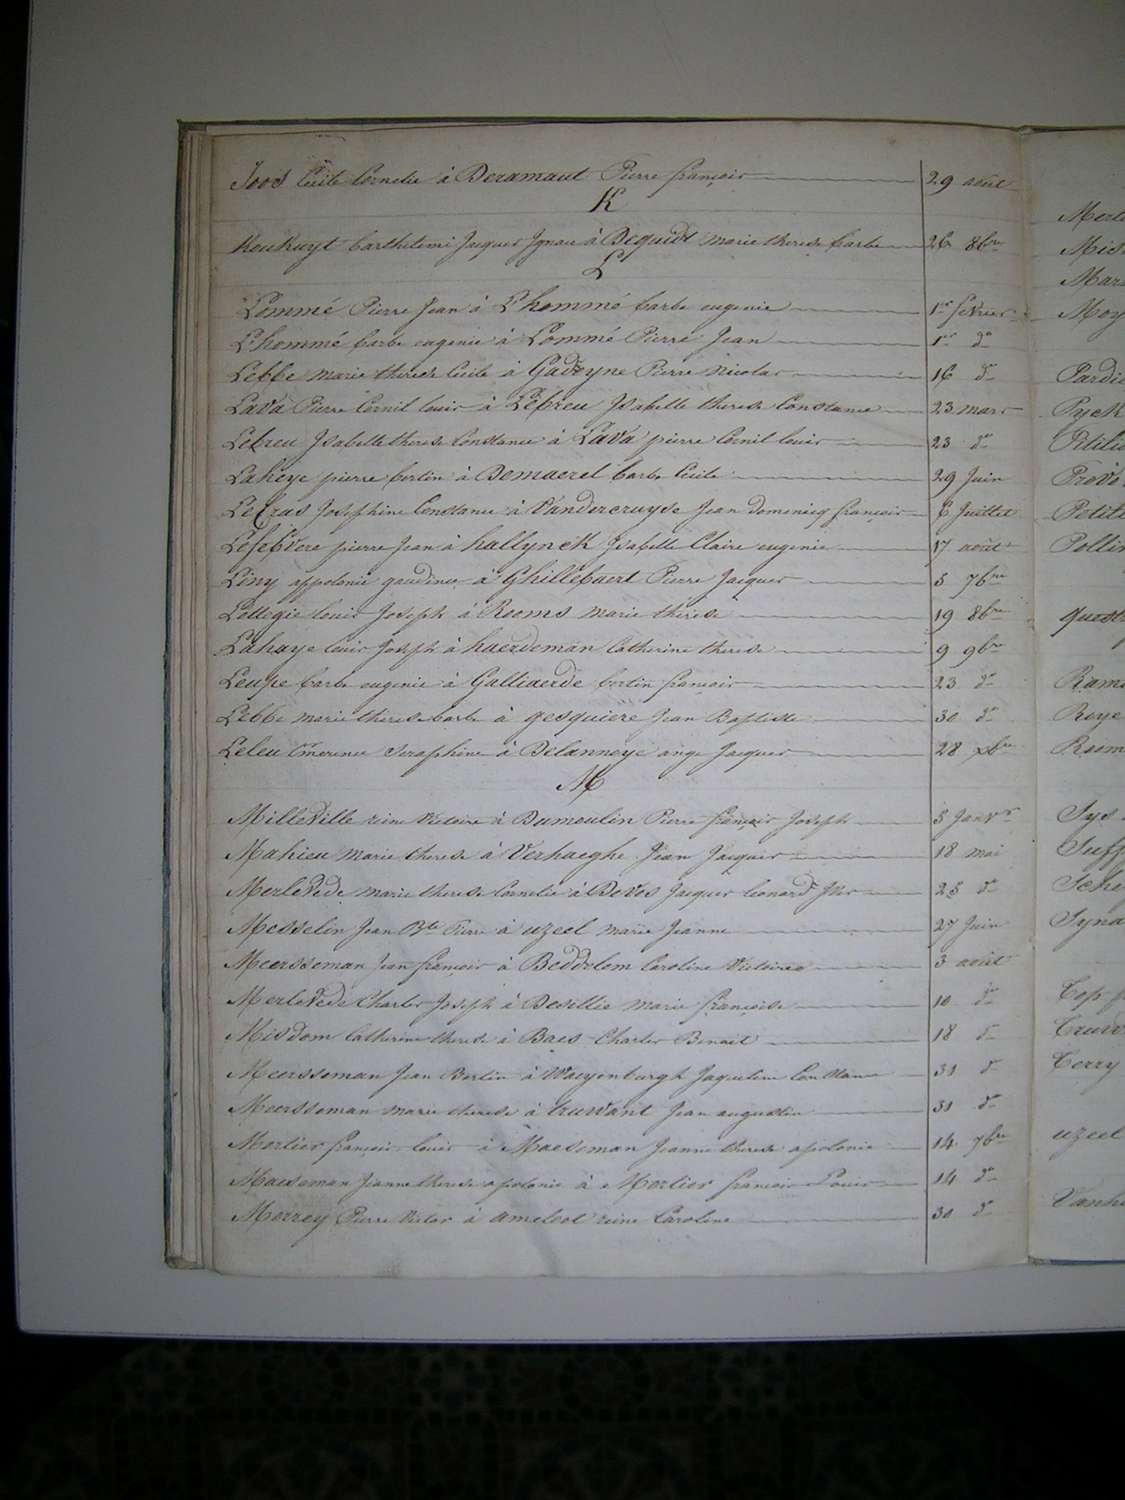 Joos Cecile Cornelie à Deramaut Pierre françois 29 août
K
Keukuyt barthelemi Jacques Ignace à Bequidt marie therese barbe 26 8bre
L
Lommé Pierre Jean à L'hommé barbe eugenie 1er fevrier
L'hommé barbe eugenie à Lommé Pierre Jean 1er do
Lebbe marie therese Cecile à Gadeyne Pierre nicolas 16 do
Lava Pierre Cornil louis à Lebreu Isabelle therese Constance 23 mars
Lebreu Isabelle therese Constance à Lava pierre Cornil louis 23 do
Laheye pierre bertin à Demaerel barbe Cecile 29 Juin
Lebras Josephine Constance à Vandercruyse Jean domenicq françois 6 Juillet
Lefebvere pierre Jean à hallynck Isabelle Claire eugenie 17 août
Liny appolonie gaudence à Ghillebaert Pierre Jacques 5 7bre
Lottegie louis Joseph à Rooms marie therese 19 8bre
Lahaye louis Joseph à haerdeman Catherine therese 9 9bre
Leupe barbe eugenie à Galliaerde bertin francois 23 do
Lebbe marie therese barbe à gesquiere Jean Baptiste 30 do
Leleu Seraphine à Delannoye ange Jacques 28 xbre
M
Milleville reine Victoire à Dumoulin Pierre françois Joseph 5 Janvr
Mahieu marie therese à Verhaeghe Jean Jacques 18 mai
Merlevede marie therese Cornelie à Devos Jacques leonard 25 do
Messelin Jean Bte Pierre à uzeel marie Jeanne 27 Juin
Meersseman Jean francois à Beddelem Caroline Victoire 3 août
Merlevede Charles Joseph à Desillie marie françoise 10 do
Misdom Catherine therese à Baes Charles Benoit 18 do
Meersseman Jean Bertin à Waeyenburgh Jaqueline Constance 31 do
Meersseman marie therese à truwant Jean augustin 31 do
Mortier françois louis à Maeseman Jeanne therese apolonie 14 7bre
Maeseman Jeanne therese apolonie à Mortier françois Louis 14 do
Merrey Pierre Victor à ameloot reine Caroline 30 do